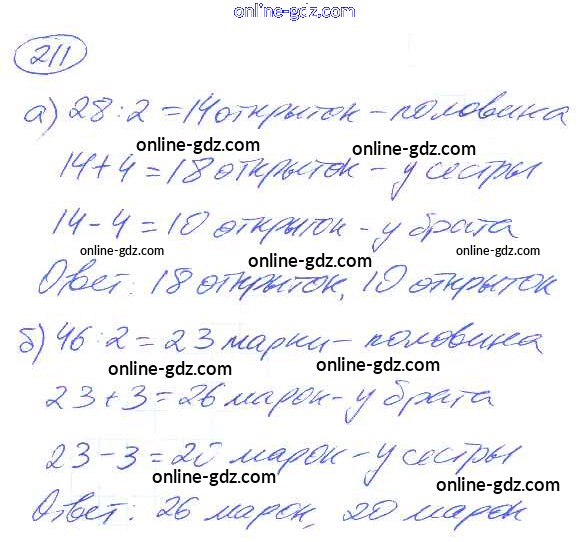 online-gdz.com
211
а) 28 : 2 = 14 открыток - половина
online-gdz.com online-gdz.com
14 + 4 = 18 открыток - у сестры
online-gdz.com
14 - 4 = 10 открыток - у брата
online-gdz.com online-gdz.com
Ответ: 18 открыток, 10 открыток
online-gdz.com
б) 46 : 2 = 23 марки - половина
online-gdz.com online-gdz.com
23 + 3 = 26 марок - у брата
online-gdz.com
23 - 3 = 20 марок - у сестры
online-gdz.com online-gdz.com
Ответ: 26 марок, 20 марок
online-gdz.com